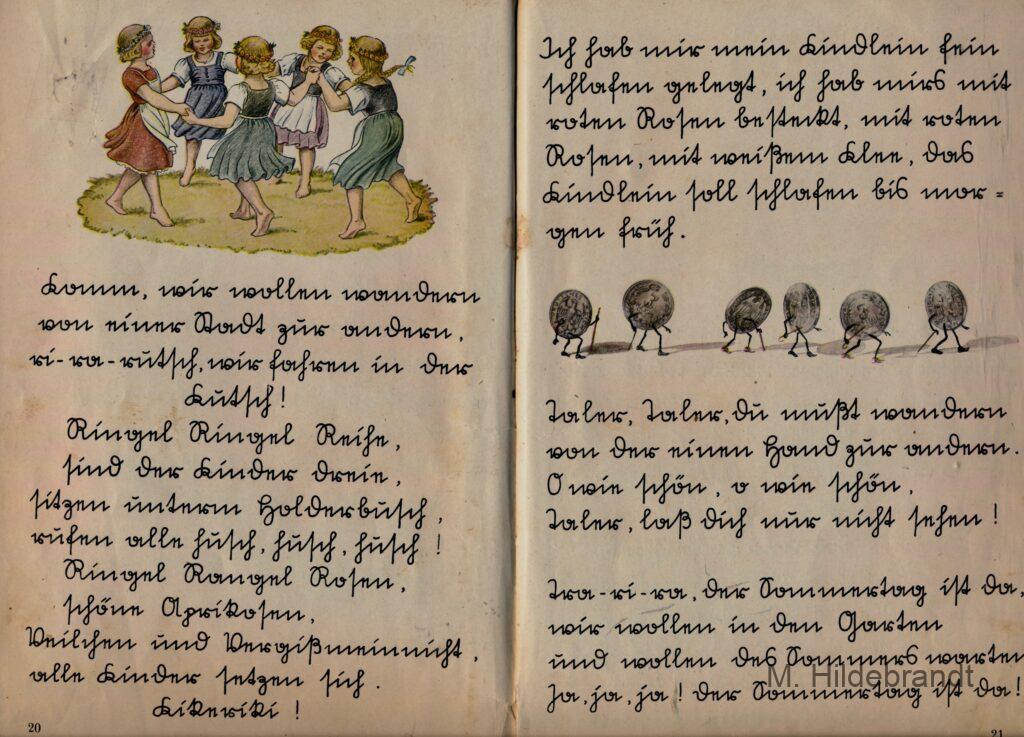 Komm, wir wollen wandern
von einer Stadt zur andern,
ri-ra-rutsch, wir fahren in der
Kutsch!
Ringel Ringel Reihe,
sind der Kinder dreie,
sitzen unterm Holderbusch,
rufen alle husch, husch, husch!
Ringel Rangel Rosen,
schöne Aprikosen,
Veilchen und Vergißmeinnicht,
alle Kinder setzen sich.
Kikeriki!
20
Ich hab mir mein Kindlein fein
schlafen gelegt, ich hab mirs mit
roten Rosen besteckt, mit roten
Rosen, mit weißem Klee, das
Kindlein soll schlafen bis mor=
gen früh.
Taler, Taler, du mußt wandern
von der einen Hand zur andern.
O wie schön, o wie schön,
Taler, laß dich nur nicht sehen!
Tra-ri-ra, der Sommertag ist da,
wir wollen in den Garten
und wollen des Sommers warten
Ja, ja, ja! der Sommertag ist da!
M. Hildebrandt
21